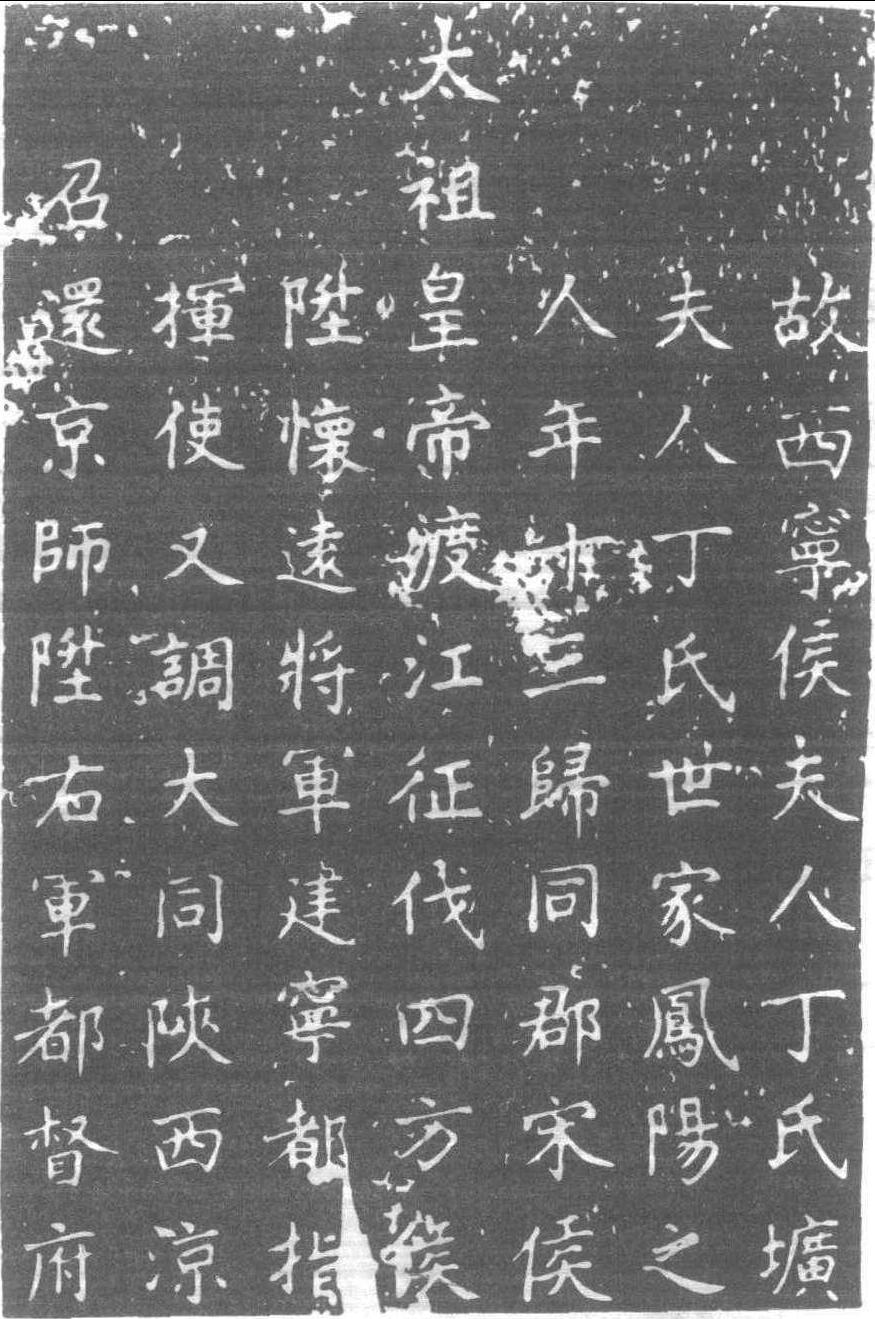 故西寧侯夫人丁氏壙
夫人丁氏世家鳳陽之
人年十三歸同郡宋侯
太祖皇帝渡江征伐四方侯
陞懷遠將軍建寧都指
揮使又調大同陝西涼
召還京師陞右軍都督府